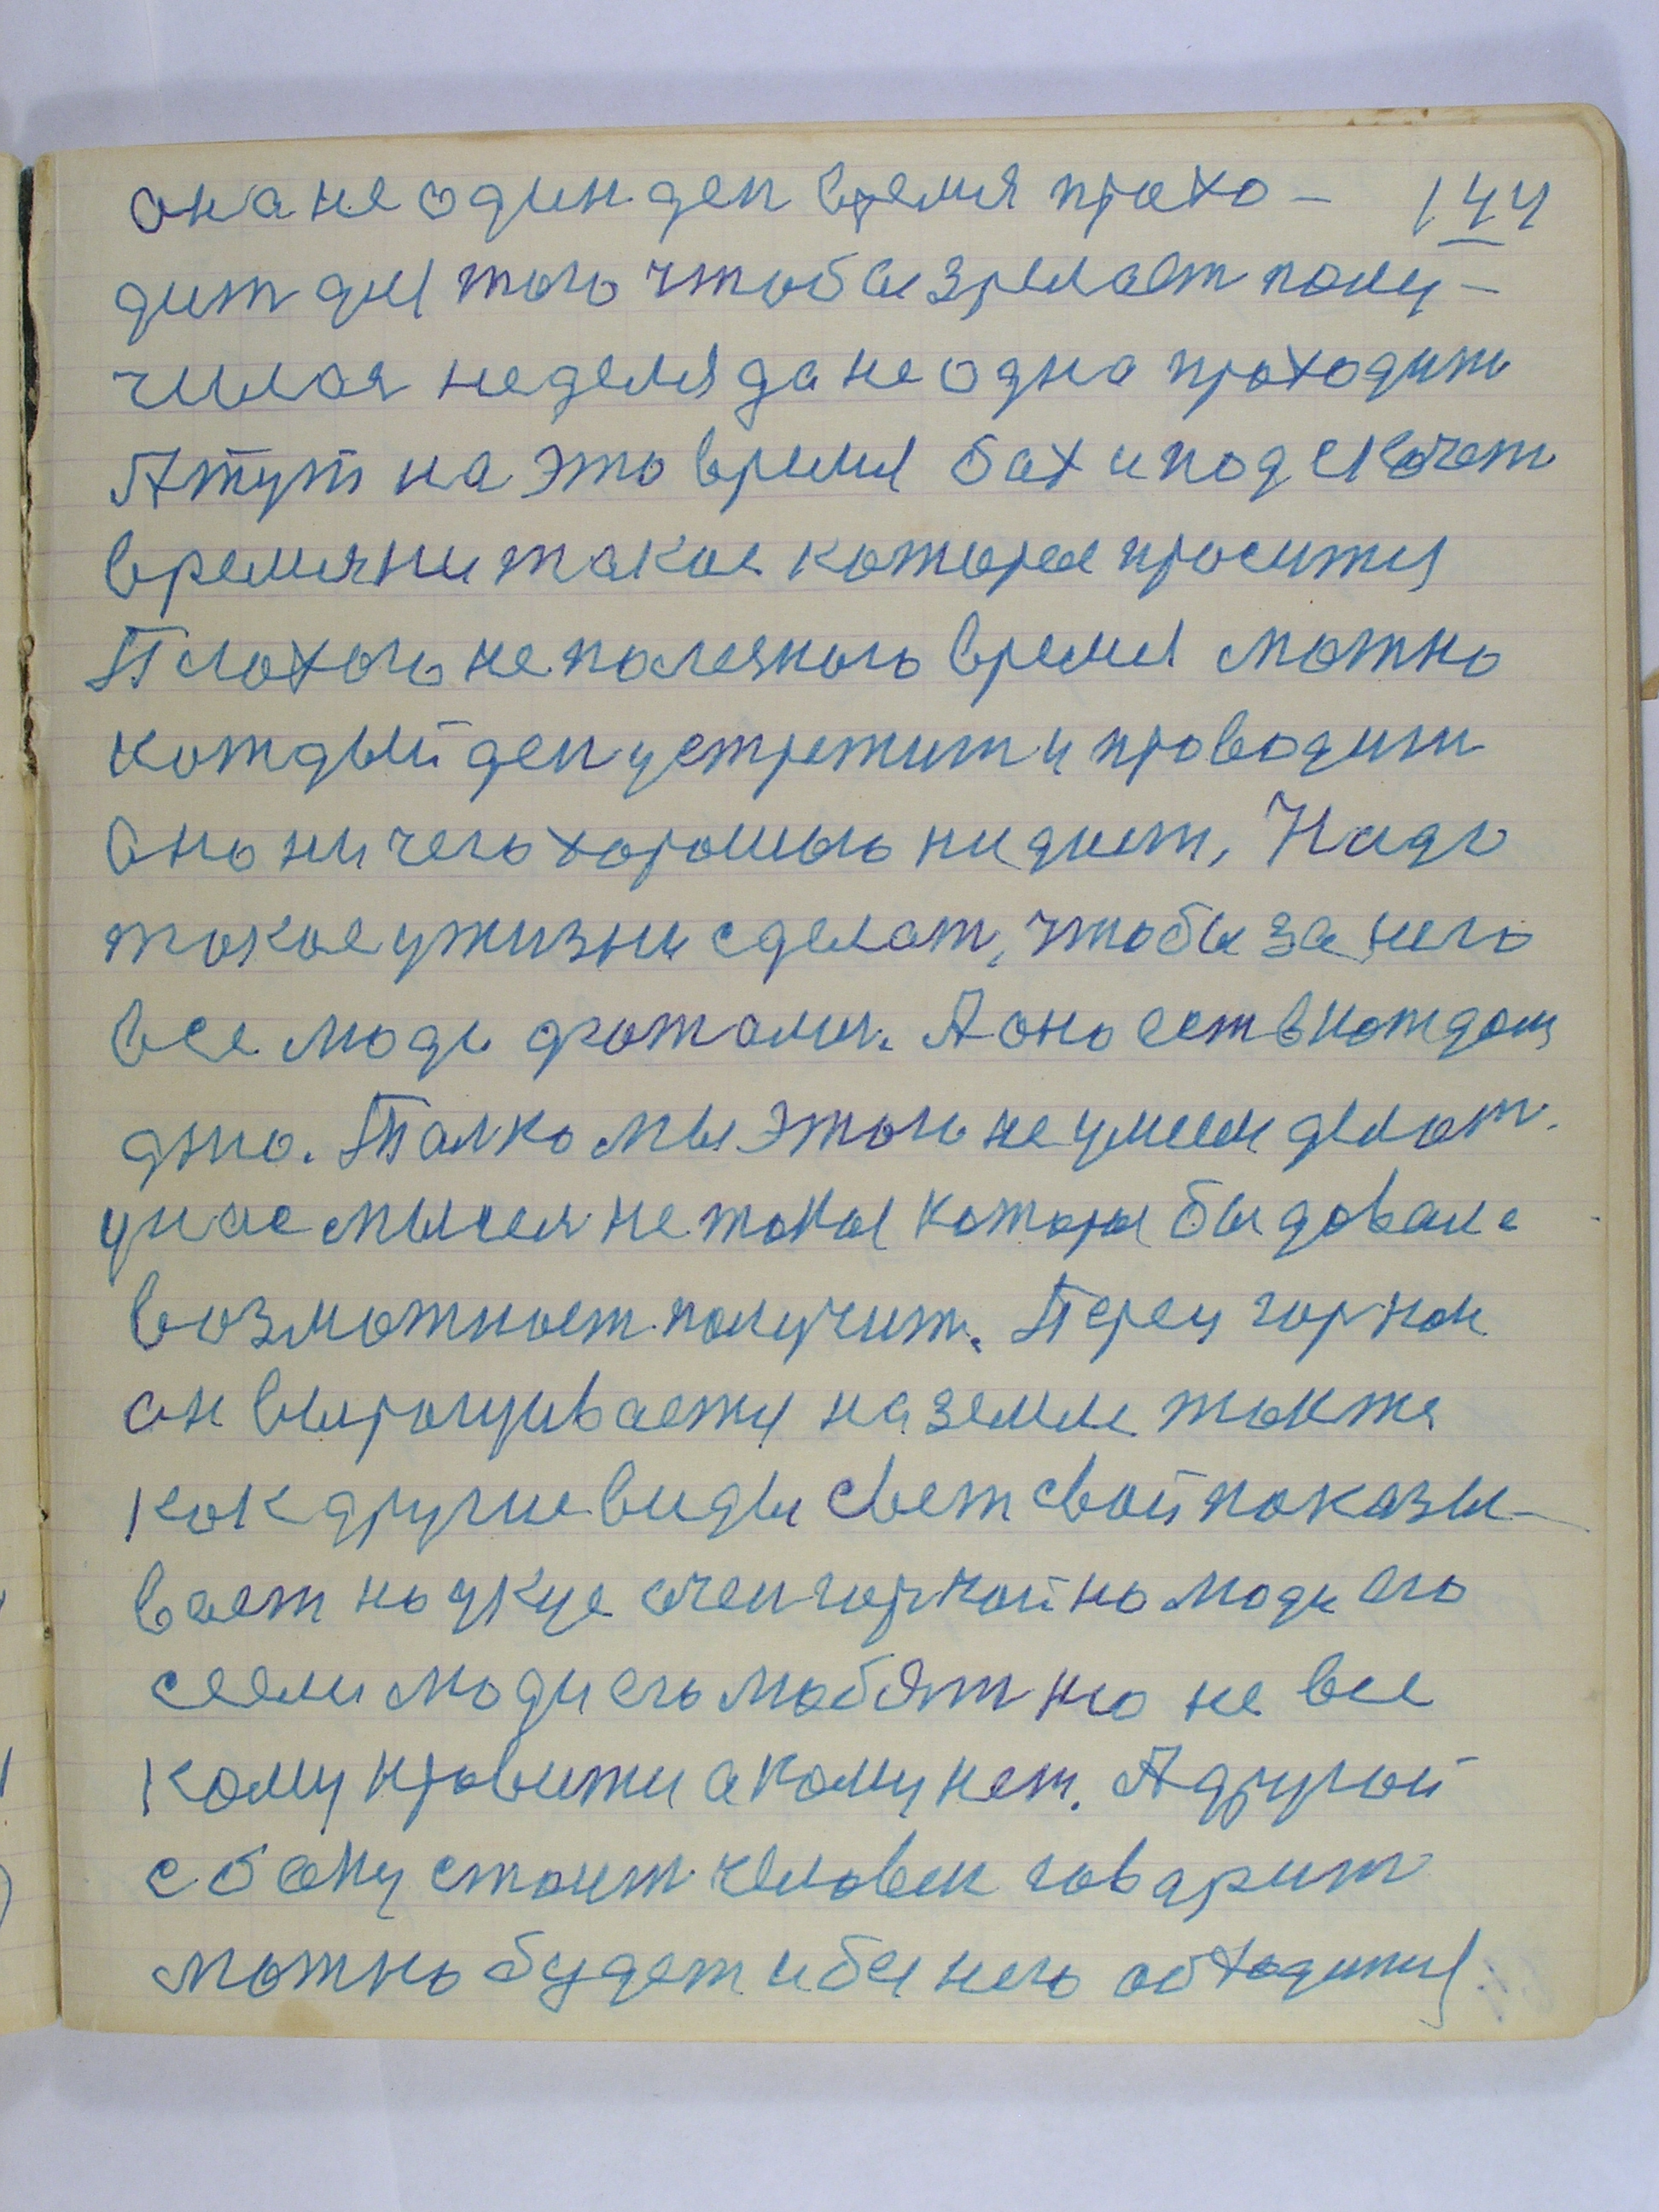 она не один ден время прохо- 144
дит для того чтобы зрелост полу-
чилас неделя да не одна проходит
А тут на это время бах и подскочет
времяни такое которое просится
Плохого не полезного время можно
каждый ден устрежит и проводит
Оно ни чего хорошыго ни дает, Надо
такое у жизни сделат, чтобы за него
все люди дражали. А оно ест в каждому
дню. Талко мы этого не умеем делат.
у нас мысея не такая которая бы довала
возможност получит. Перец горкой
он выращуивается на земле также
как другие виды свет свой показы-
вает но укус очен горкой но люди его
сеели люди его любят но не все
кому нравится а кому нет. А другой
с боку стоит человек говарит
можно будет и без него обходится